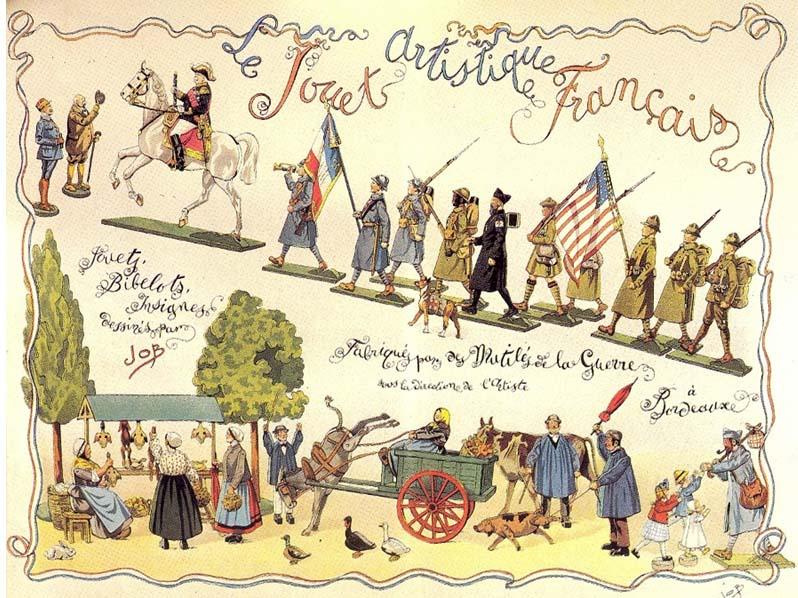 Le Jouet Artistique Français
Jouets,
Bibelots,
Insignes
dessinés par
JOB
Fabriqués par des Mutilés de la Guerre
sous la direction de l'Artiste
à
Bordeaux
JOB